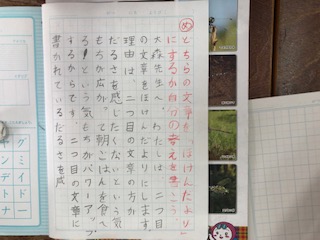 め
どちらの文章を「ほけんだより」
にするか自分の考えを書こう。
大森先生へ。わたしは、二つ目
の文章をほけんだよりにします。
理由は、二つ目の文章の方が
だるさを感じたくないという気
もちが広がって朝ごはんを食べ
るという気もちがパワーアップ
するからです。二つ目の文章に
書かれているだるさを感
グミデイトナ